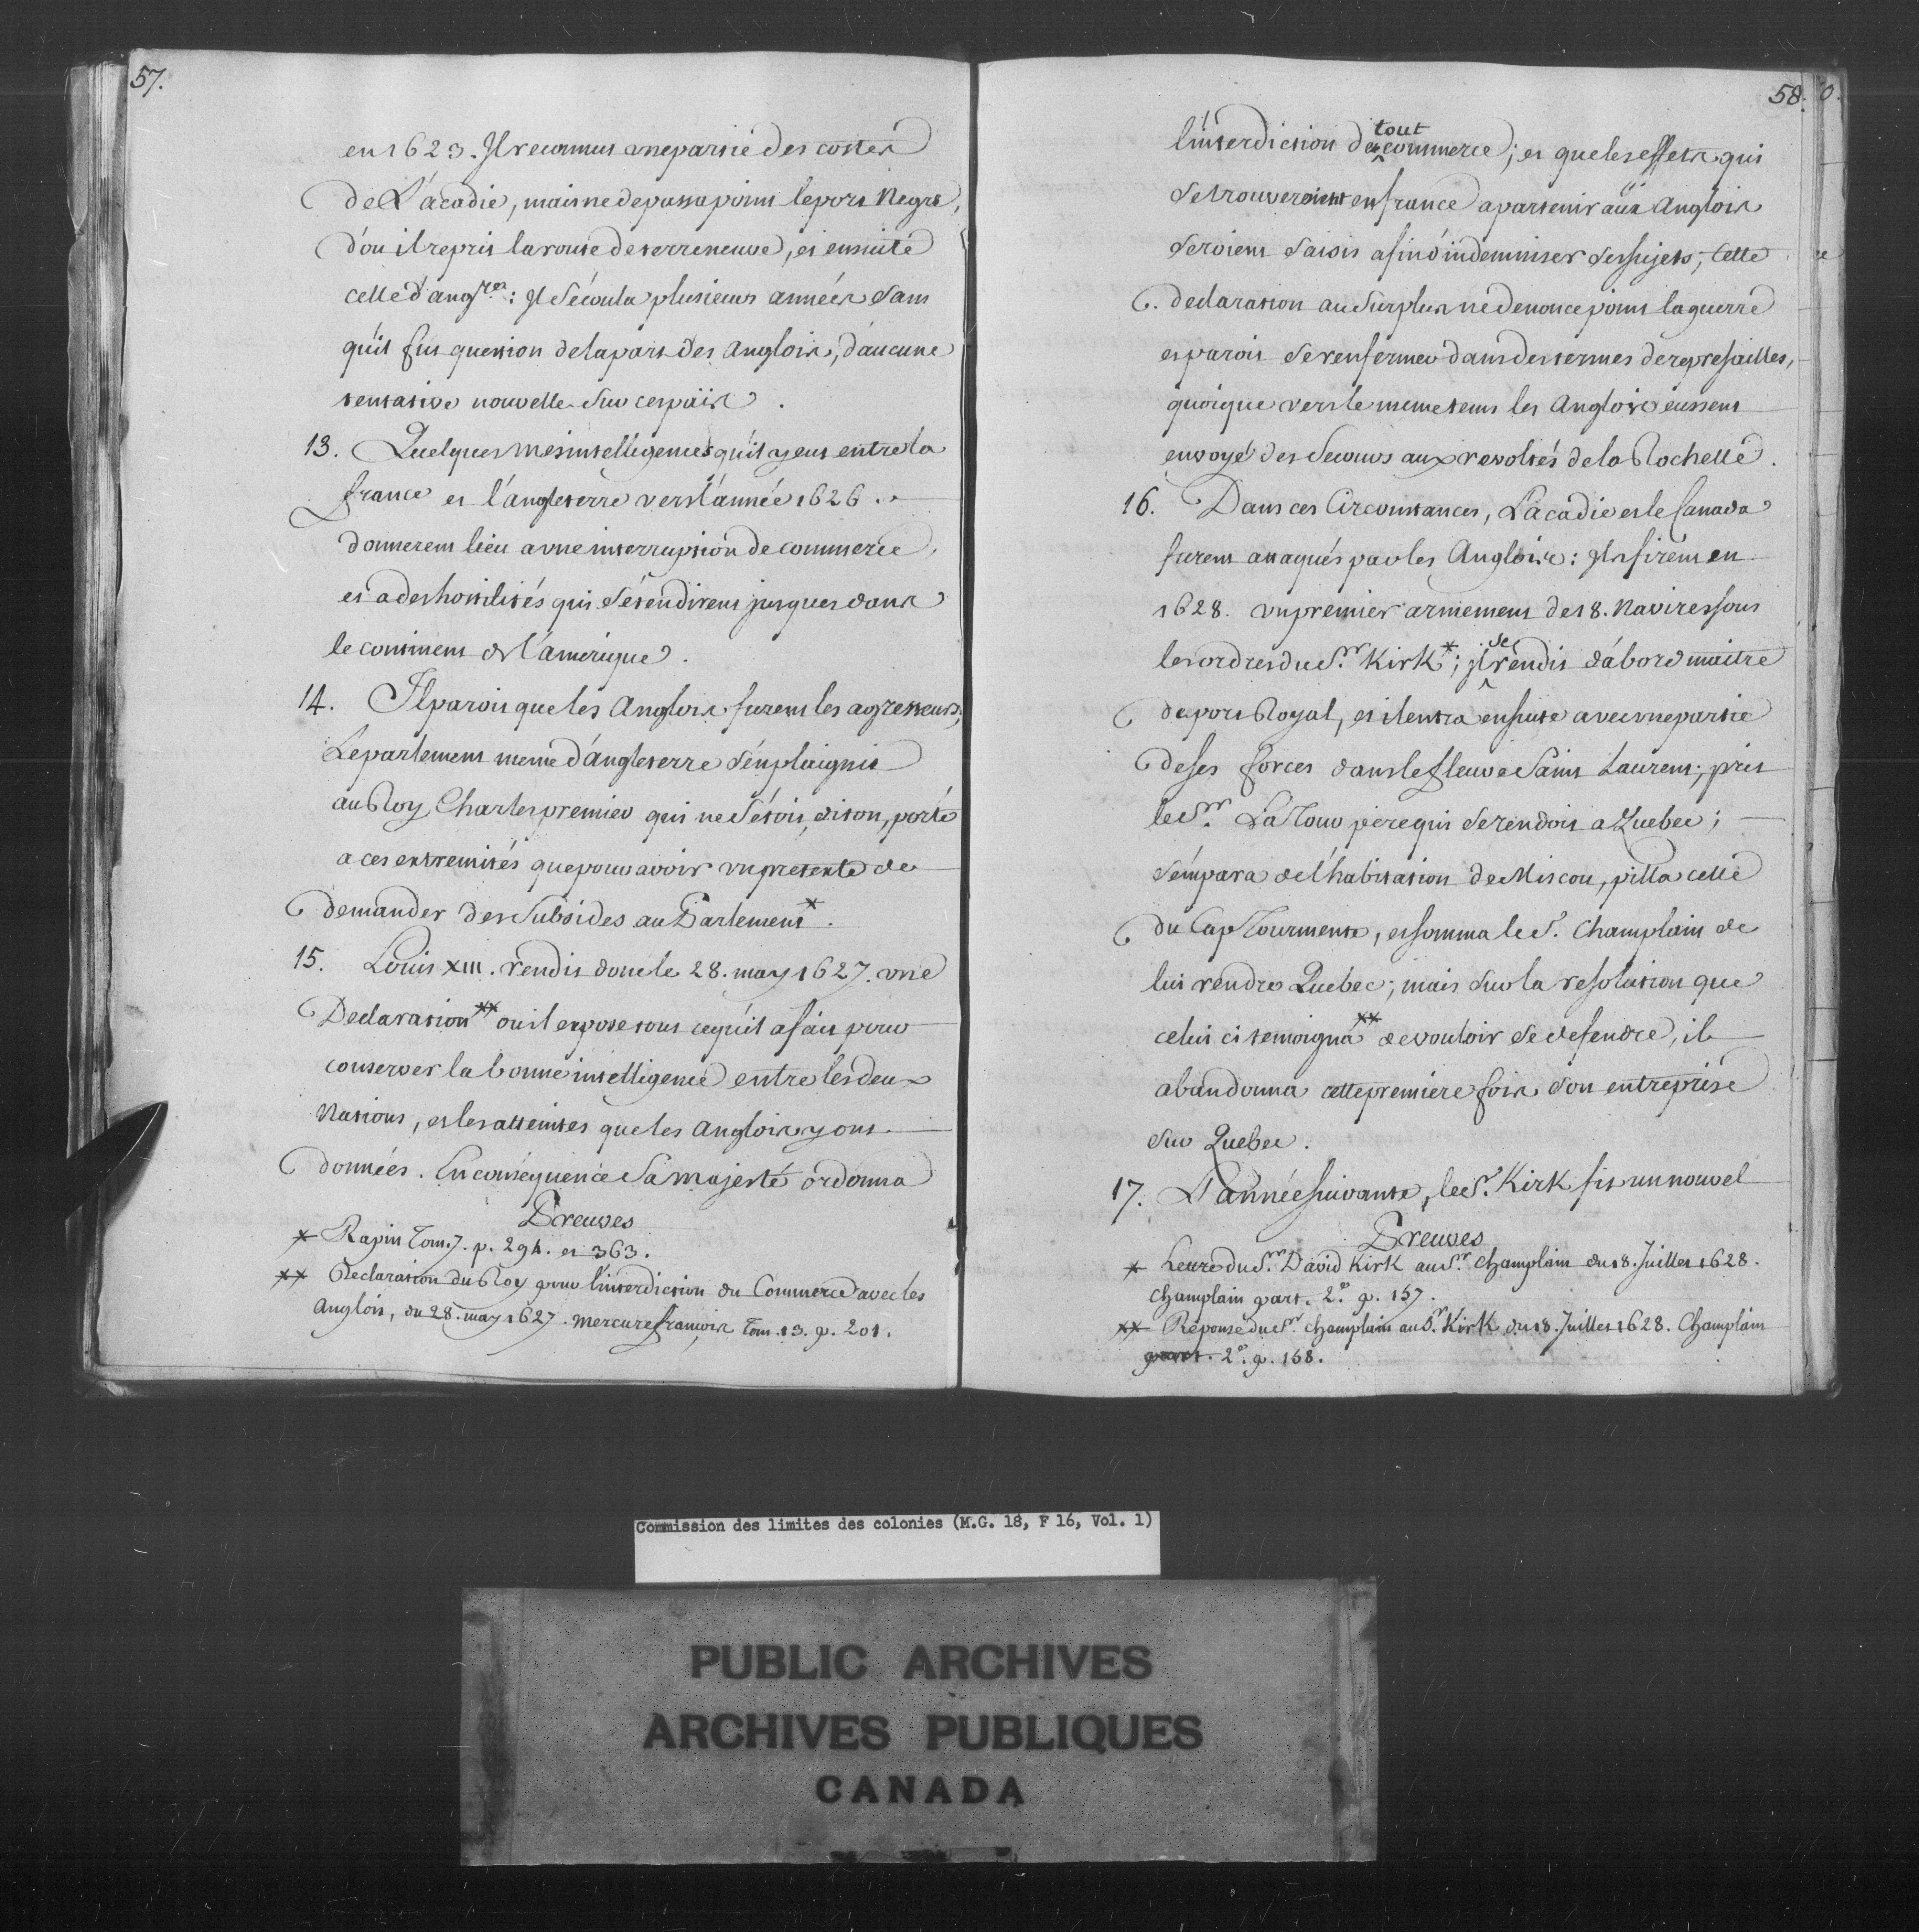 57.
en 1623. Il reconnut une partie des costes
de L'acadie, mais ne depassa point le port Negre,
d'ou il reprit la route de terreneuve, et ensuite
celle d'angres: Il s'écoula plusieurs années sans
qu'il fut question de la part des Anglois, d'aucune
tentative nouvelle sur ces païs.
13. Quelques mesintelligences qu'il y eut entre la
france et l'angleterre vers l'année 1626.
donnerent lieu a une interruption de commerce,
et a des hostilités qui s'étendirent jusques dans
le continent de l'amerique.
14. Il paroit que les Anglois furent les agresseurs,
Le parlement meme d'Angleterre s'en plaignit
au Roy Charles premier qui ne s'étoit, dit on, porté
a ces extremités que pour avoir un pretexte de
demander des Subsides au Parlement*.
15. Louis XIII. rendit donc le 28. may 1627. une
Declaration** ou il expose tout ce qu'il a fait pour
conserver la bonne intelligence entre les deux
Nations, et les atteintes que les Anglois y ont
données. En conséquence Sa Majesté ordonna
Preuves
* Rapin Tom. 7. p. 294. et 363.
** Declaration du Roy pour l'interdiction du Commerce avec les
Anglois, du 28. may 1627. mercure francois Tom. 13. p. 201.
58.
l'interdiction de tout commerce; et que les effets qui
se trouveroient en france apartenir aux Anglois
seroient saisis afin d'indemniser ses sujets; Cette
declaration au surplus ne denonce point la guerre
et paroit se renfermer dans des termes de represailles,
quoique vers le meme tems les Anglois eussent
envoyé des secours aux revoltés de la Rochelle.
16. Dans ces Circonstances, L'acadie et le Canada
furent attaqués par les Anglois: Ils firent en
1628. un premier armement de 18. Navires sous
les ordres du Sr. Kirk*; il se rendit d'abord maitre
du port Royal, et il entra ensuite avec une partie
de ses forces dans le fleuve Saint Laurent; prit
le Sr. La Tour pere qui se rendoit a Quebec;
s'empara de l'habitation de Miscou, pilla celle
du Cap Tourmente, et somma le S. Champlain de
lui rendre Quebec; mais sur la resolution que
celui ci temoigna** de vouloir se defendre, il
abandonna cette premiere fois son entreprise
sur Quebec.
17. L'année suivante, le S. Kirk fit un nouvel
Preuves
* Lettre du Sr. David Kirk au Sr. Champlain du 18. Juillet 1628.
Champlain part. 2e. p. 157.
** Réponse du Sr. Champlain au Sr. Kirk du 18. Juillet 1628. Champlain
part. 2e. p. 158.
Commission des limites des colonies (M.G. 18, F 16, Vol. 1)
PUBLIC ARCHIVES
ARCHIVES PUBLIQUES
CANADA